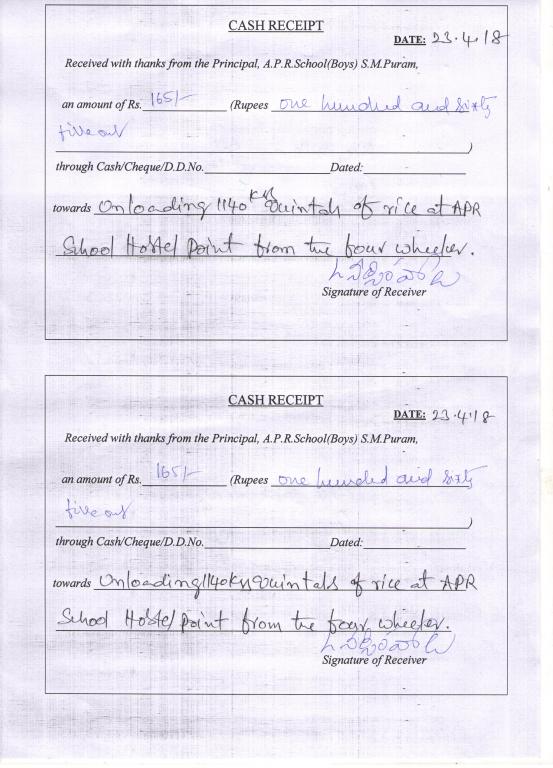 CASH RECEIPT
DATE: 23.4.18
Received with thanks from the Principal, A.P.R.School(Boys) S.M.Puram,
an amount of Rs. 165/- (Rupees one hundred and sixty
five only
)
through Cash/Cheque/D.D.No. Dated:
towards Unloading 1140 Kgs Quintals of rice at APR
School Hostel point from the four wheeler.
Signature of Receiver
CASH RECEIPT
DATE: 23.4.18
Received with thanks from the Principal, A.P.R.School(Boys) S.M.Puram,
an amount of Rs. 165/- (Rupees one hundred and sixty
five only
)
through Cash/Cheque/D.D.No. Dated:
towards Unloading 1140 Kgs Quintals of rice at APR
School Hostel point from the four wheeler.
Signature of Receiver